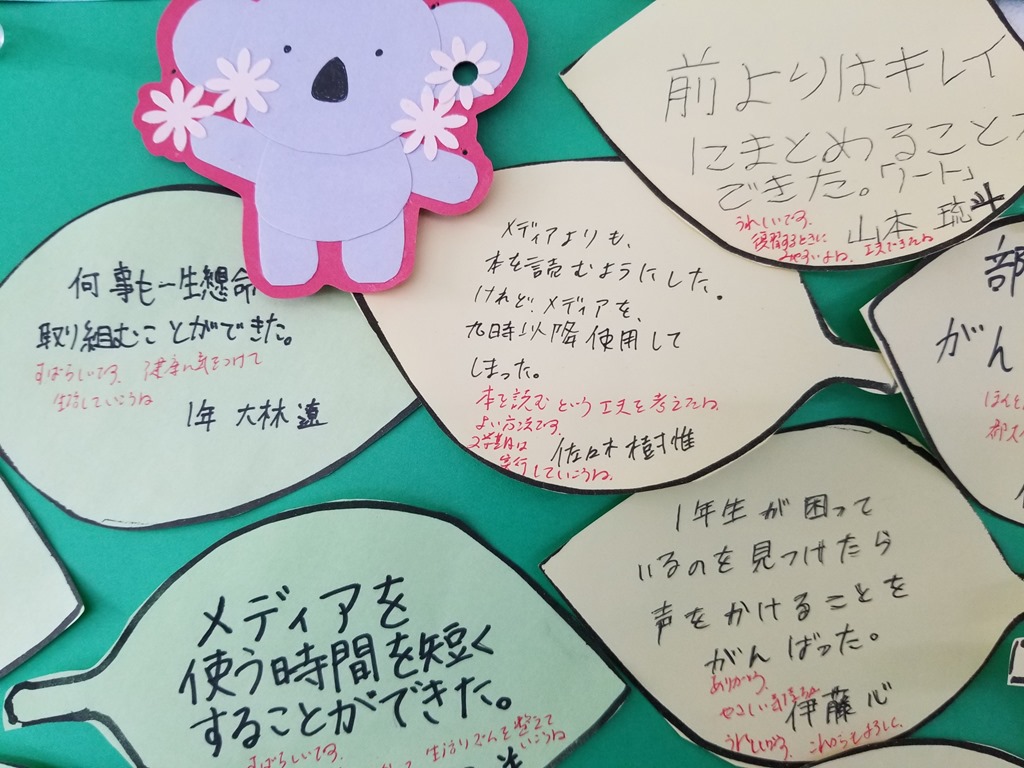 前よりはキレイ
にまとめること
できた。「ノート」
山本 琉斗
うれしいです。
復習するときに
みやすいよね。工夫できたね
何事も一生懸命
取り組むことができた。
すばらしいです。健康に気をつけて
生活していこうね
1年 大林 遠
メディアよりも、
本を読むようにした。
けれど、メディアを、
九時以降使用して
しまった。
本を読むという工夫を考えたね。
よい方法です。
2学期は
実行していこうね。
佐々木 樹惟
部
がん
メディアを
使う時間を短く
することができた。
すばらしいです。
生活リズムを整えて
いこうね
1年生が困って
いるのを見つけたら
声をかけることを
がんばった。
ありがとう。
やさしい気持ちが
伊藤 心
うれしいから。これからもよろしく。